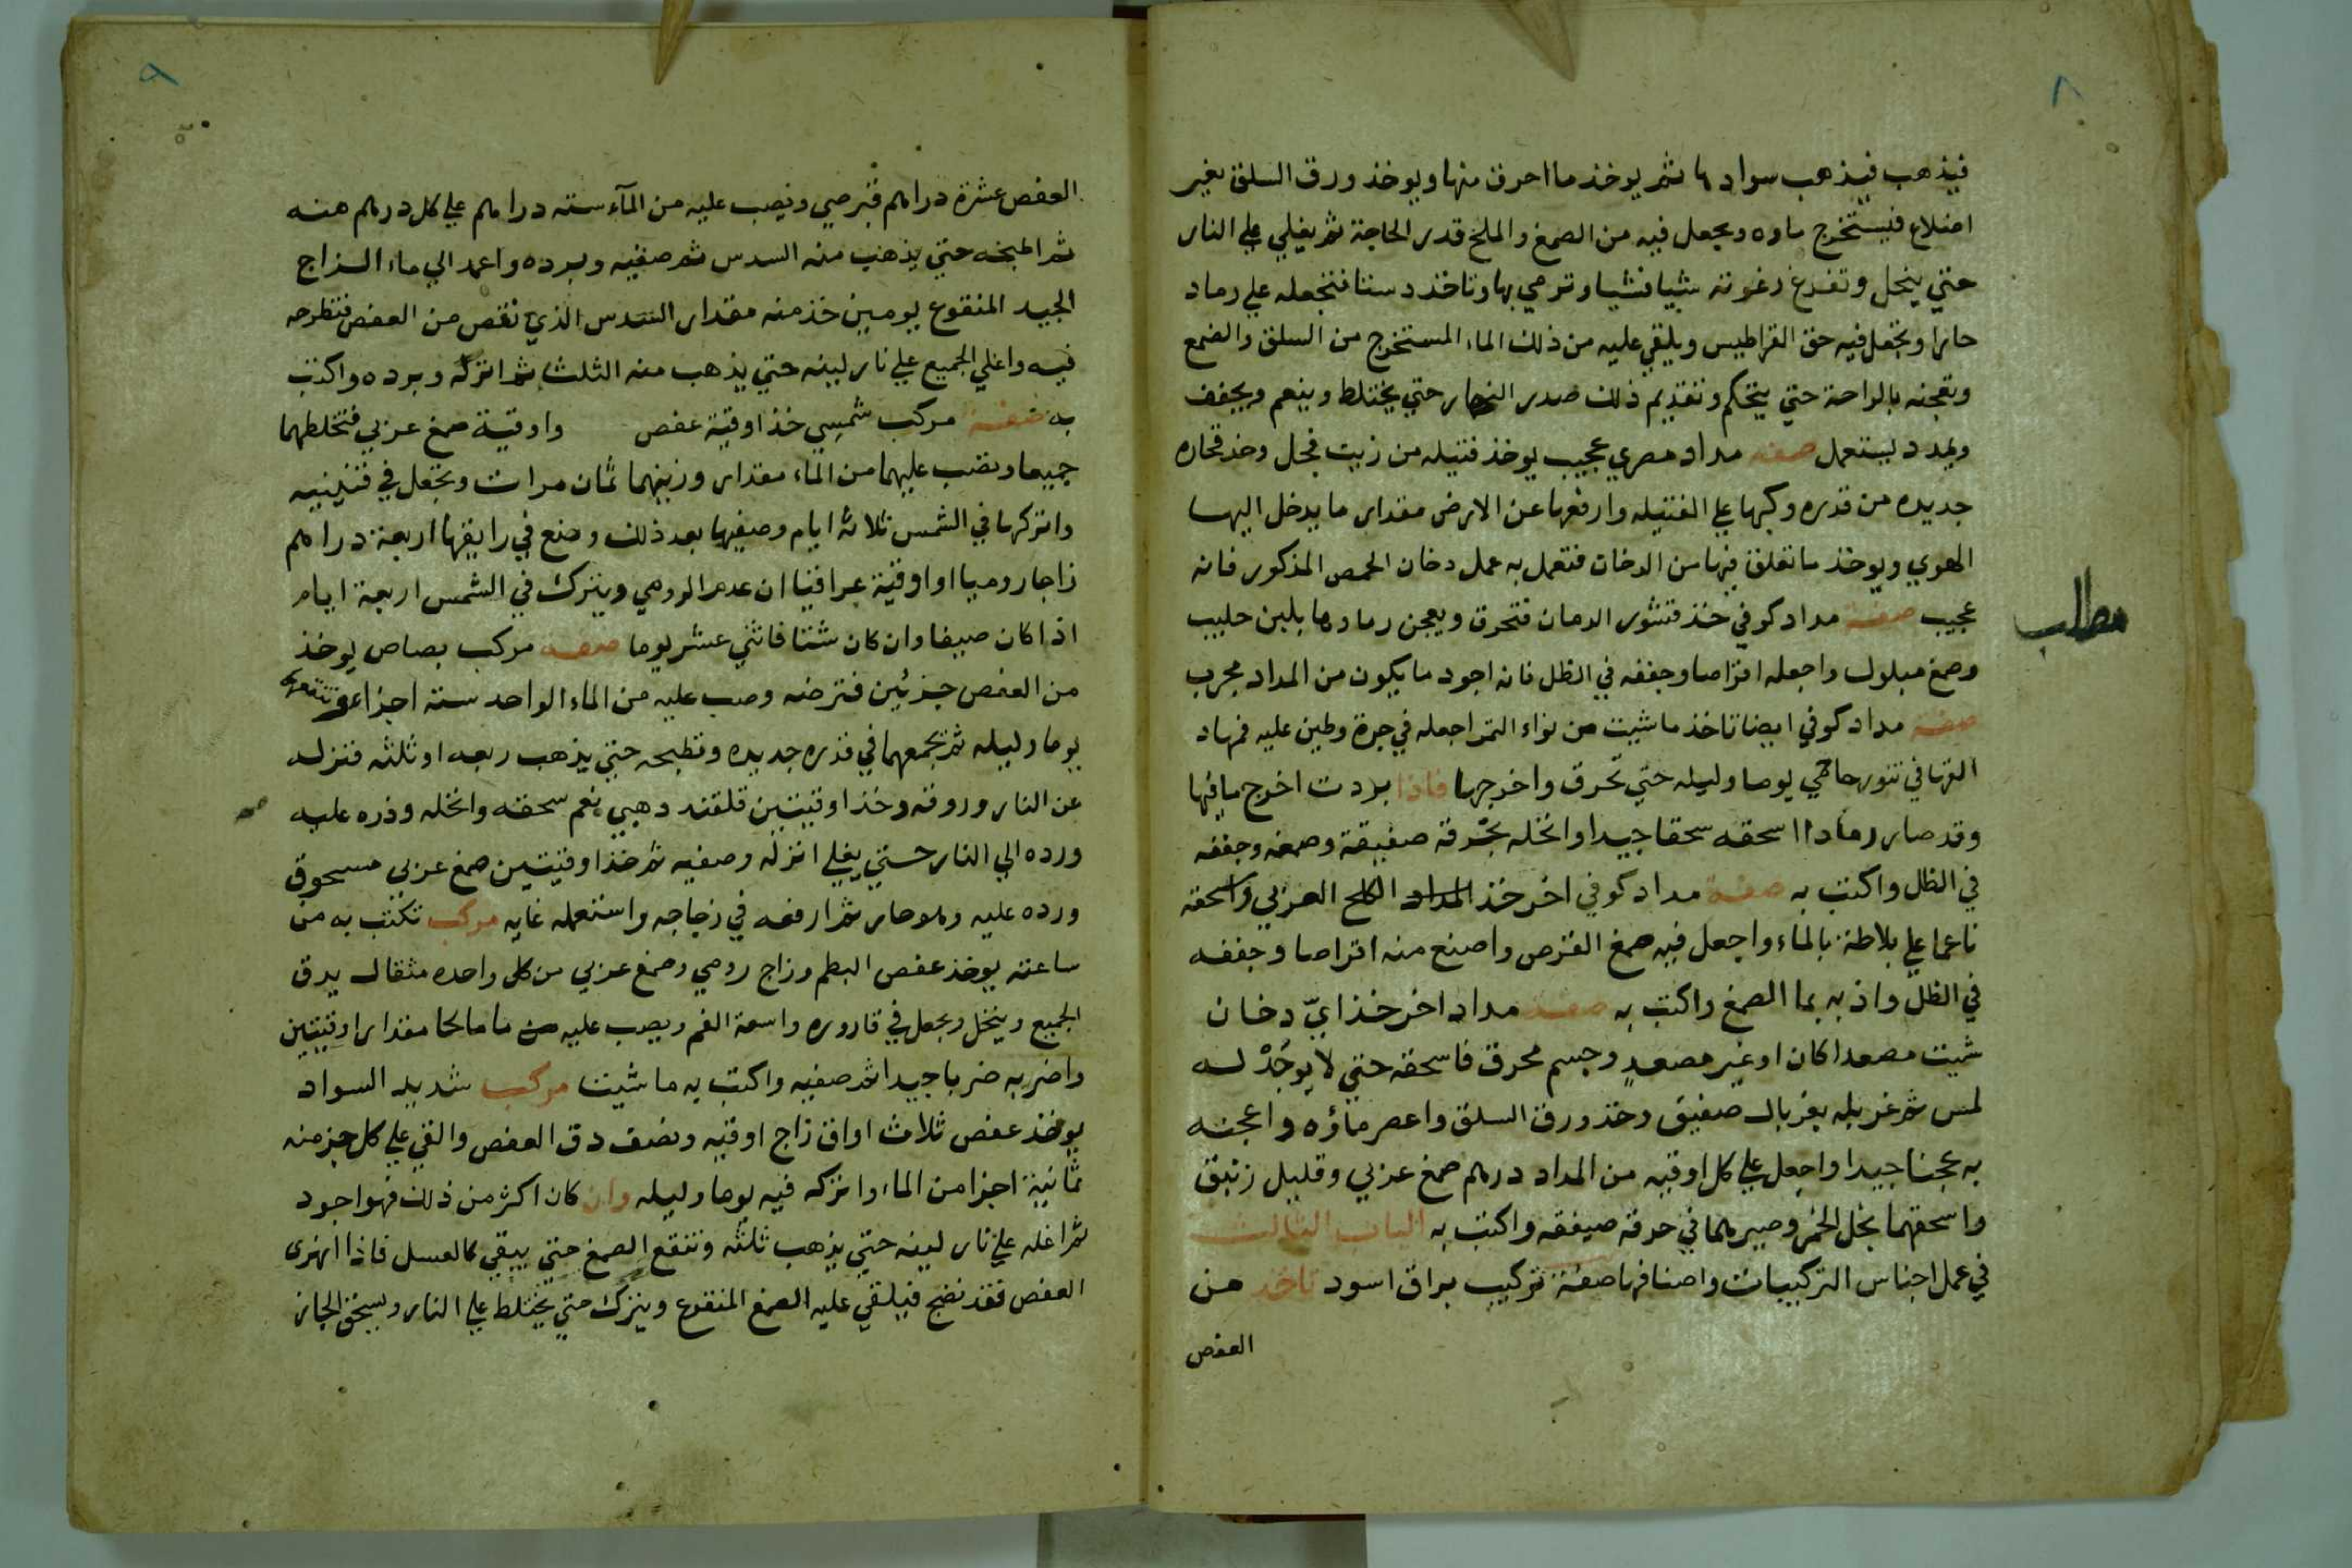 ٨
فيذهب فيذهب سوادها ثم يوخذ ما احرق منها ويوخذ ورق السلق بغير
اضلاع فيستخرج ماوه ويجعل فيه من الصمغ والملح قدر الحاجة ثم يغلي علي النار
حتي ينحل وتفرغ رغوته شيا فشيا وترمي بها وتاخذ دستا فتجعله علي رماد
حارا وتجعل فيه حق القراطيس ويلقي عليه من ذلك الماء المستخرج من السلق والصمغ
وتعجنه بالراحة حتي يتحكم وتقديم ذلك صدر النهار حتي يختلط وينعم ويجفف
ويمدد ليستعمل صفه مداد مصري عجيب يوخذ فتيله من زيت فجل وخذ فخاره
جديده من قدره وكبها علي الفتيله وارفعها عن الارض مقدار ما يدخل اليها
الهوي ويوخذ ما تعلق فيها من الدخان فتعمل به عمل دخان الحمص المذكور فانه
عجيب صفة مداد كوفي خذ قشور الرمان فتحرق ويعجن رمادها بلبن حليب
مطلب
وصمغ مبلول واجعله اقراصا وجففه في الظل فانه اجود ما يكون من المداد مجرب
صفه مداد كوفي ايضا تاخذ ما شيت من نواء التمر اجعله في جرة وطين عليه فمها
القها في تنور حامي يوما وليله حتي تحرق واخرجها فاذا بردت اخرج ما فيها
وقد صار رمادا اسحقه سحقا جيدا وانخله بخرقة صفيقة وصمغه وجففه
في الظل واكتب به صفة مداد كوفي اخر خذ المداد الملح العربي واسحقه
ناعما علي بلاطة بالماء واجعل فيه صمغ القرص واصنع منه اقراصا وجففه
في الظل واذبه بما الصمغ واكتب به صفة مداد اخر خذ ايّ دخان
شيت مصعدا كان او غير مصعدٍ وجسم محرق فاسحقه حتي لا يوجدْ له
لمس ثم غربله بغربال صفيق وخذ ورق السلق واعصر ماؤه واعجنه
به عجنا جيدا واجعل علي كل اوقيه من المداد درهم صمغ عربي وقليل زئبق
واسحقهما بخل الخمر وصيرهما في خرقة صيفقه واكتب به الباب الثالث
في عمل اجناس التركيبات واصنافها صفة تركيب براق اسود تاخذ من
العفص
٩
العفص عشرة دراهم قبرصي ويصب عليه من المآء سته دراهم علي كل درهم منه
ثم اطبخه حتي يذهب منه السدس ثم صفيه وبرده واعمد الي ماء الزاج
الجيد المنقوع يومين خذ منه مقدار السدس الذي نقص من العفص فتطرحه
فيه واغلي الجميع علي نار لينه حتي يذهب منه الثلث ثم انزله وبرده واكتب
به صفة مركب شمسي خذ اوقية عفص واوقية صمغ عربي فتخلطهما
جميعا وتصب عليهما من الماء مقدار وزنهما ثمان مرات وتجعل في قنينيه
واتركها في الشمس ثلاثة ايام وصفيها بعد ذلك وضع في رايقها اربعة دراهم
زاجا روميا او اوقية عراقيا ان عدم الرومي ويترك في الشمس اربعة ايام
اذا كان صيفا وان كان شتا فاثني عشر يوما صفه مركب بصاص يوخذ
من العفص جزئين فترضه وصب عليه من الماء الواحد ستة اجزاء وتنقعه
يوما وليله ثم تجمعهما في قدره جديده وتطبخه حتي يذهب ربعه او ثلثه فتنزله
عن النار وروقه وخذ اوقيتين قلقند دهبي نعم سحقه وانخله وذره عليه
ورده الي النار حتي يغلي انزله وصفيه ثم خذ اوقيتين صمغ عربي مسحوق
ورده عليه وهو حار ثم ارفعه في زجاجه واستعمله غايه مركب تكتب به من
ساعته يوخذ عفص البطم وزاج رومي وصمغ عربي من كل واحده مثقال يدق
الجميع وينخل ويجعل في قاروره واسعة الفم ويصب عليه ما مالحا مقدار اوقيتين
واضربه ضربا جيدا ثم صفيه واكتب به ما شيت مركب شديد السواد
يوخذ عفص ثلاث اواق زاج اوقيه ونصف دق العفص والقي علي كل جز منه
ثمانية اجزا من الماء واتركه فيه يوما وليله وان كان اكثر من ذلك فهو اجود
ثم اغله علي نار لينه حتي يذهب ثلثه وتنقع الصمغ حتي يبقي كالعسل فاذا انهري
العفص فقد نضج فيلقي عليه الصمغ المنقوع ويترك حتي يختلط علي النار ويسحق الجاز